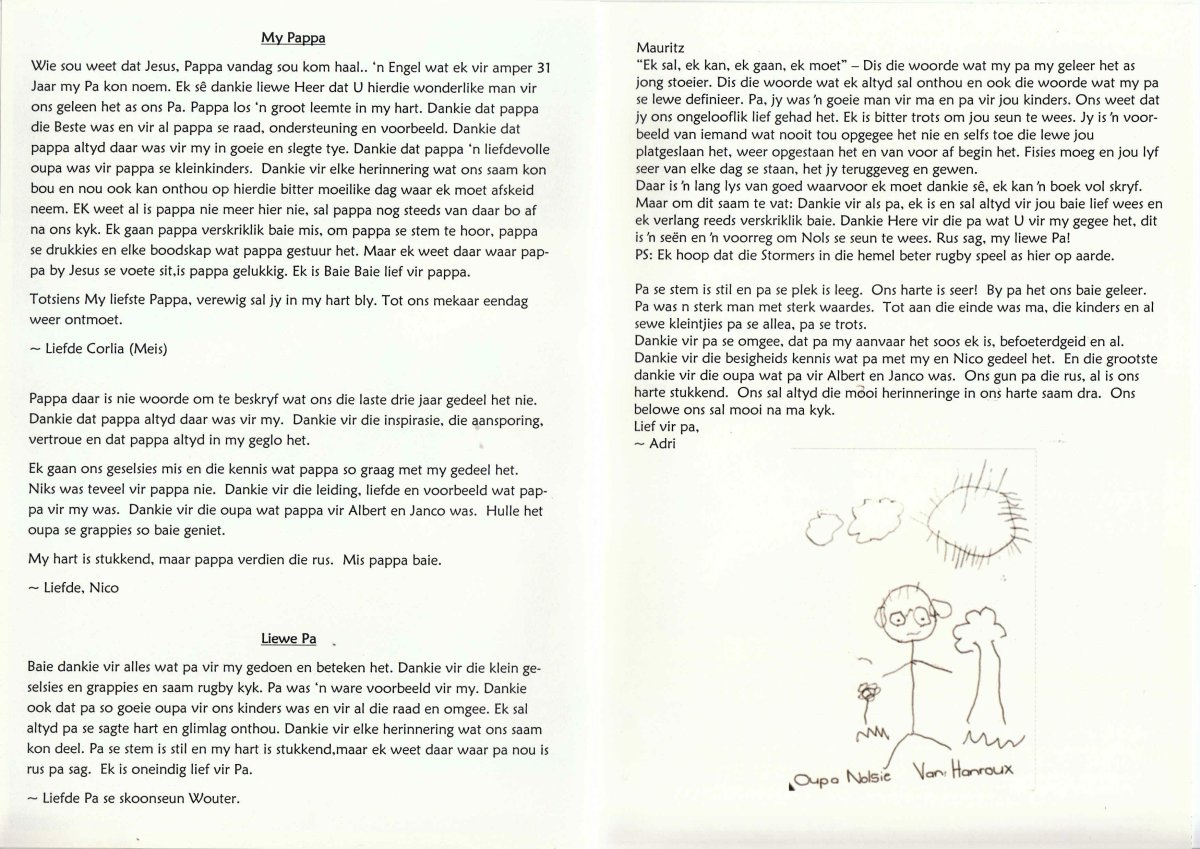 My Pappa
Wie sou weet dat Jesus, Pappa vandag sou kom haal.. ‘n Engel wat ek vir amper 31
Jaar my Pa kon noem. Ek sê dankie liewe Heer dat U hierdie wonderlike man vir
ons geleen het as ons Pa. Pappa los ‘n groot leemte in my hart. Dankie dat pappa
die Beste was en vir al pappa se raad, ondersteuning en voorbeeld. Dankie dat
pappa altyd daar was vir my in goeie en slegte tye. Dankie dat pappa ‘n liefdevolle
oupa was vir pappa se kleinkinders.  Dankie vir elke herinnering wat ons saam kon
bou en nou ook kan onthou op hierdie bitter moeilike dag waar ek moet afskeid
neem. EK weet al is pappa nie meer hier nie, sal pappa nog steeds van daar bo af
na ons kyk. Ek gaan pappa verskriklik baie mis, om pappa se stem te hoor, pappa
se drukkies en elke boodskap wat pappa gestuur het. Maar ek weet daar waar pap-
pa by Jesus se voete sit,is pappa gelukkig. Ek is Baie Baie lief vir pappa.
Totsiens My liefste Pappa, verewig sal jy in my hart bly. Tot ons mekaar eendag
weer ontmoet.
~ Liefde Corlia (Meis)
Pappa daar is nie woorde om te beskryf wat ons die laste drie jaar gedeel het nie.
Dankie dat pappa altyd daar was vir my.  Dankie vir die inspirasie, die aansporing,
vertroue en dat pappa altyd in my geglo het.
Ek gaan ons geselsies mis en die kennis wat pappa so graag met my gedeel het.
Niks was teveel vir pappa nie.  Dankie vir die leiding, liefde en voorbeeld wat pap-
pa vir my was.  Dankie vir die oupa wat pappa vir Albert en Janco was.  Hulle het
oupa se grappies so baie geniet.
My hart is stukkend, maar pappa verdien die rus.  Mis pappa baie.
~ Liefde, Nico
Liewe Pa
Baie dankie vir alles wat pa vir my gedoen en beteken het. Dankie vir die klein ge-
selsies en grappies en saam rugby kyk. Pa was ‘n ware voorbeeld vir my. Dankie
ook dat pa so goeie oupa vir ons kinders was en vir al die raad en omgee. Ek sal
altyd pa se sagte hart en glimlag onthou. Dankie vir elke herinnering wat ons saam
kon deel. Pa se stem is stil en my hart is stukkend,maar ek weet daar waar pa nou is
rus pa sag.  Ek is oneindig lief vir Pa.
~ Liefde Pa se skoonseun Wouter.
Mauritz
“Ek sal, ek kan, ek gaan, ek moet” – Dis die woorde wat my pa my geleer het as
jong stoeier. Dis die woorde wat ek altyd sal onthou en ook die woorde wat my pa
se lewe definieer. Pa, jy was ‘n goeie man vir ma en pa vir jou kinders. Ons weet dat
jy ons ongelooflik lief gehad het. Ek is bitter trots om jou seun te wees. Jy is ‘n voor-
beeld van iemand wat nooit tou opgegee het nie en selfs toe die lewe jou
platgeslaan het, weer opgestaan het en van voor af begin het. Fisies moeg en jou lyf
seer van elke dag se staan, het jy teruggeveg en gewen.
Daar is ‘n lang lys van goed waarvoor ek moet dankie sê, ek kan ‘n boek vol skryf.
Maar om dit saam te vat: Dankie vir als pa, ek is en sal altyd vir jou baie lief wees en
ek verlang reeds verskriklik baie. Dankie Here vir die pa wat U vir my gegee het, dit
is ‘n seën en ‘n voorreg om Nols se seun te wees. Rus sag, my liewe Pa!
PS: Ek hoop dat die Stormers in die hemel beter rugby speel as hier op aarde.
Pa se stem is stil en pa se plek is leeg.  Ons harte is seer!  By pa het ons baie geleer.
Pa was n sterk man met sterk waardes.  Tot aan die einde was ma, die kinders en al
sewe kleintjies pa se allea, pa se trots.
Dankie vir pa se omgee, dat pa my aanvaar het soos ek is, befoeterdgeid en al.
Dankie vir die besigheids kennis wat pa met my en Nico gedeel het.  En die grootste
dankie vir die oupa wat pa vir Albert en Janco was.  Ons gun pa die rus, al is ons
harte stukkend.  Ons sal altyd die mooi herinneringe in ons harte saam dra.  Ons
belowe ons sal mooi na ma kyk.
Lief vir pa,
~ Adri
Oupa Nolsie Van: Hanroux